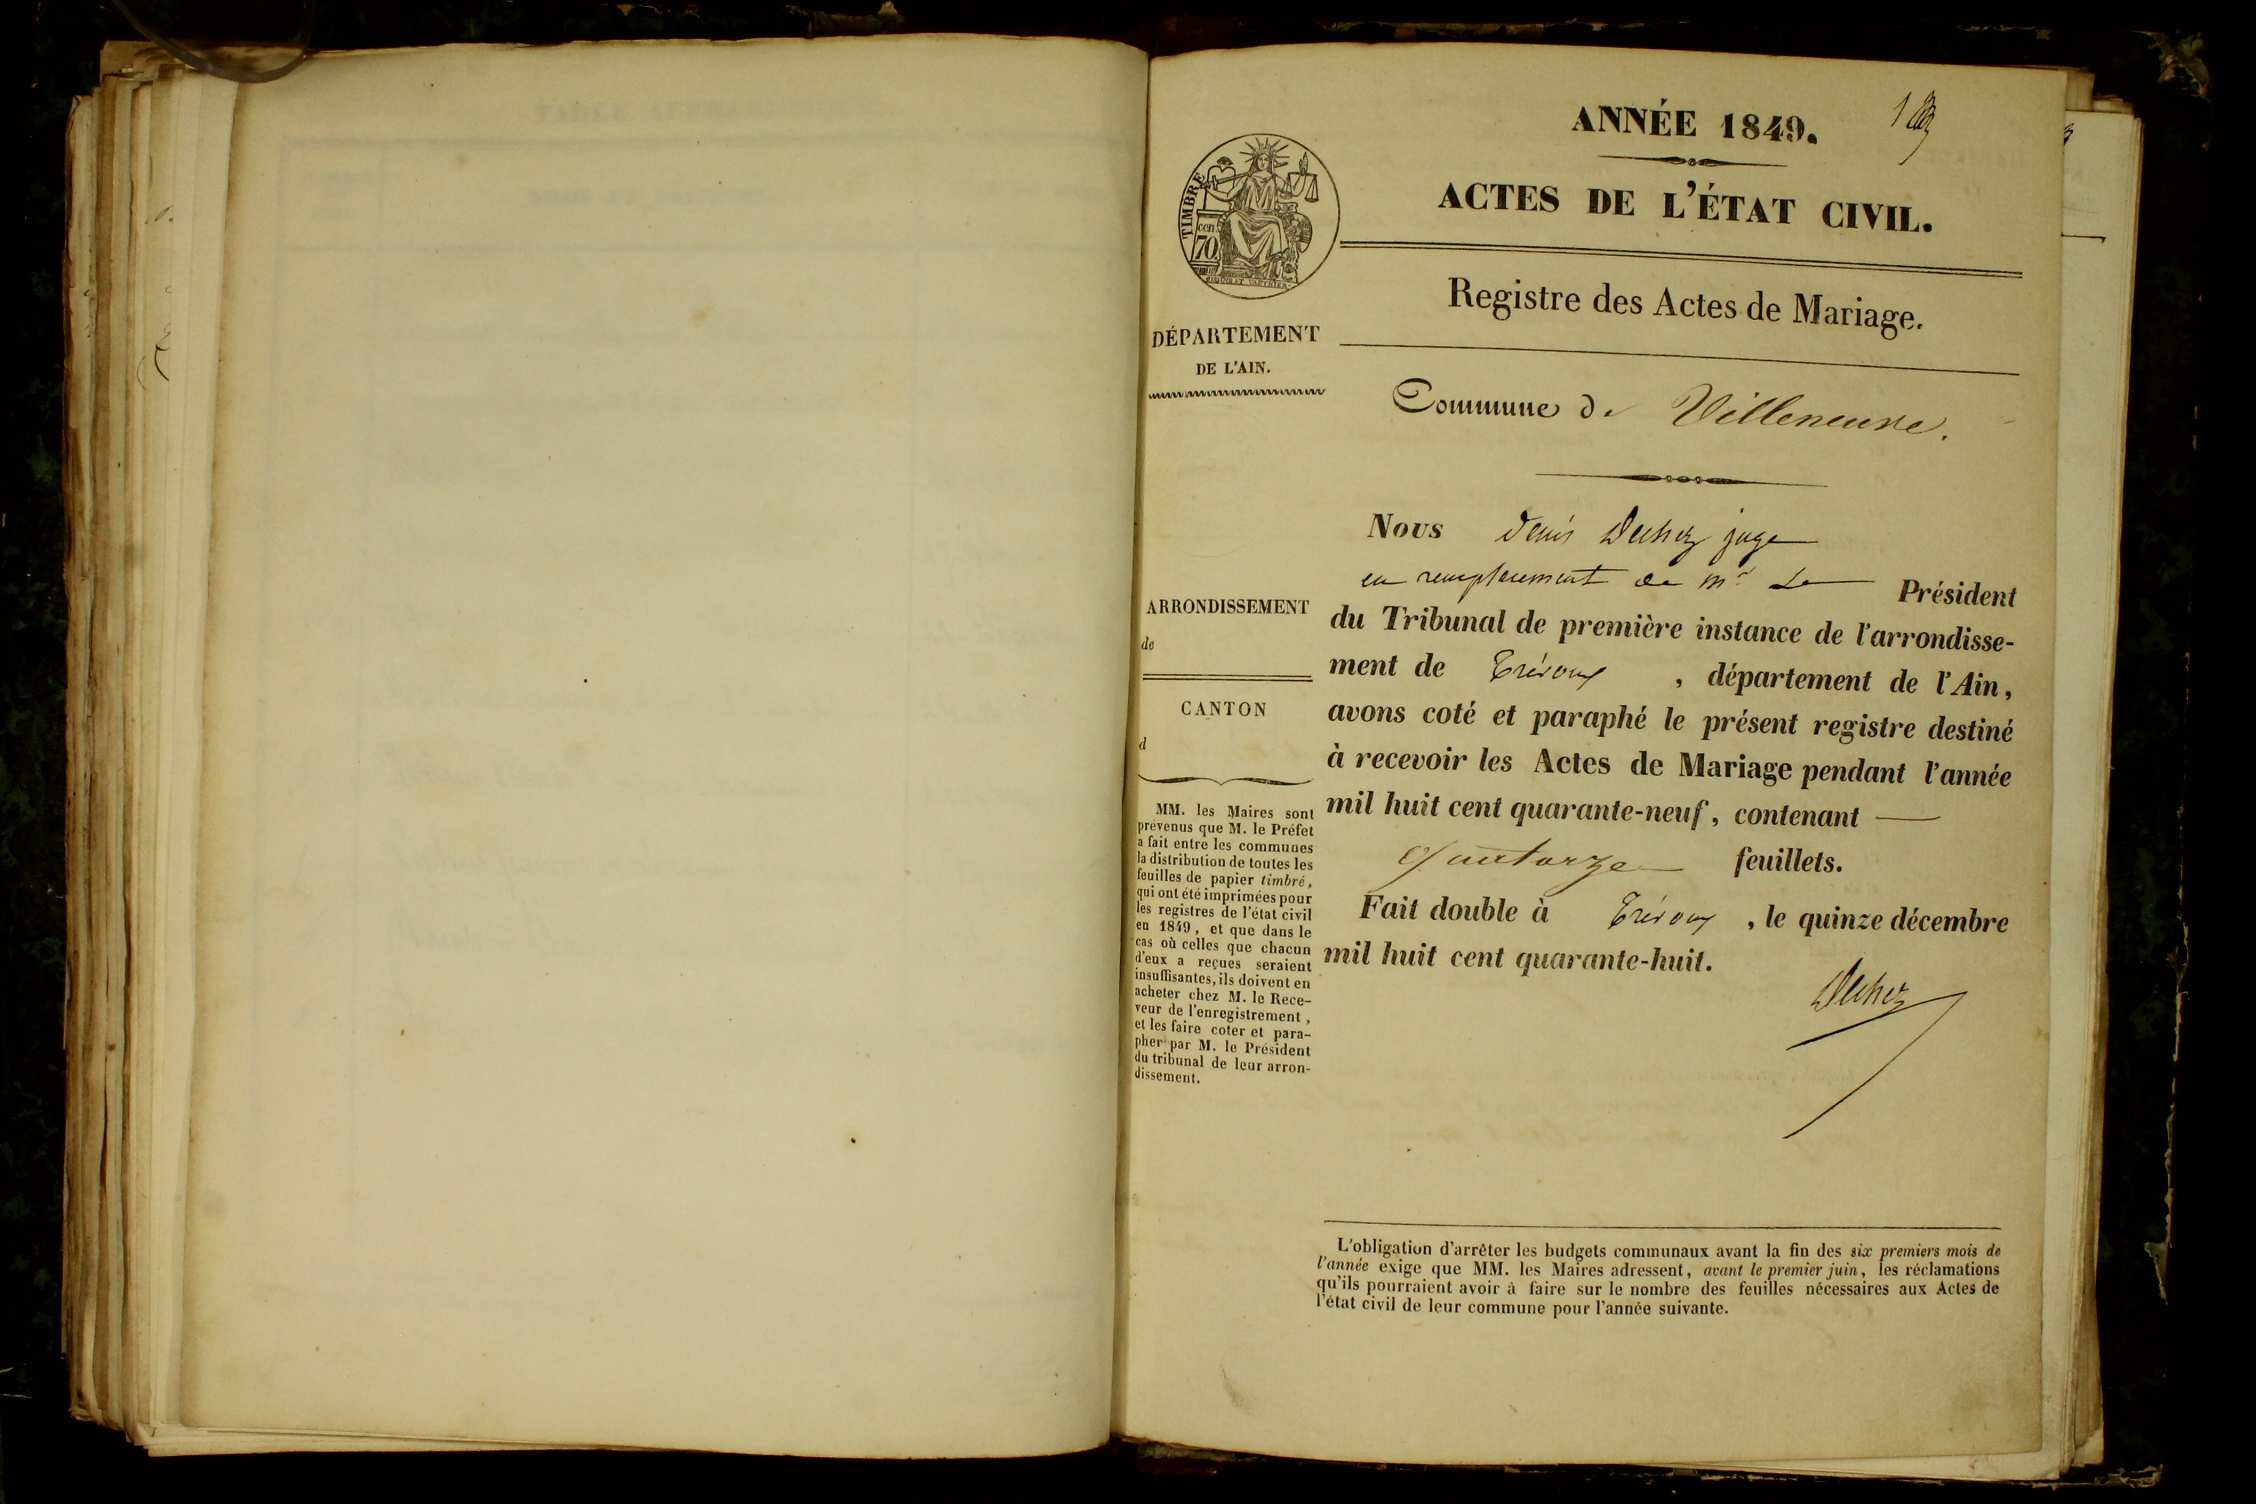 ANNÉE 1849.
ACTES DE L'ÉTAT CIVIL.
TIMBRE
cen
70
Registre des Actes de Mariage.
DÉPARTEMENT
DE L'AIN.
Commune de Villeneuve.
Nous Denis Dechez juge
en remplacement de Mr Le Président
du Tribunal de première instance de l'arrondisse-
ment de Trévoux, département de l'Ain,
avons coté et paraphé le présent registre destiné
à recevoir les Actes de Mariage pendant l'année
mil huit cent quarante-neuf, contenant —
quatorze feuillets.
Fait double à Trévoux, le quinze décembre
mil huit cent quarante-huit.
Dechez
ARRONDISSEMENT
de
CANTON
d
MM. les Maires sont
prévenus que M. le Préfet
a fait entre les communes
la distribution de toutes les
feuilles de papier timbré,
qui ont été imprimées pour
les registres de l'état civil
en 1849, et que dans le
cas où celles que chacun
d'eux a reçues seraient
insuffisantes, ils doivent en
acheter chez M. le Rece-
veur de l'enregistrement,
et les faire coter et para-
pher par M. le Président
du tribunal de leur arron-
dissement.
L'obligation d'arrêter les budgets communaux avant la fin des six premiers mois de
l'année exige que MM. les Maires adressent, avant le premier juin, les réclamations
qu'ils pourraient avoir à faire sur le nombre des feuilles nécessaires aux Actes de
l'état civil de leur commune pour l'année suivante.